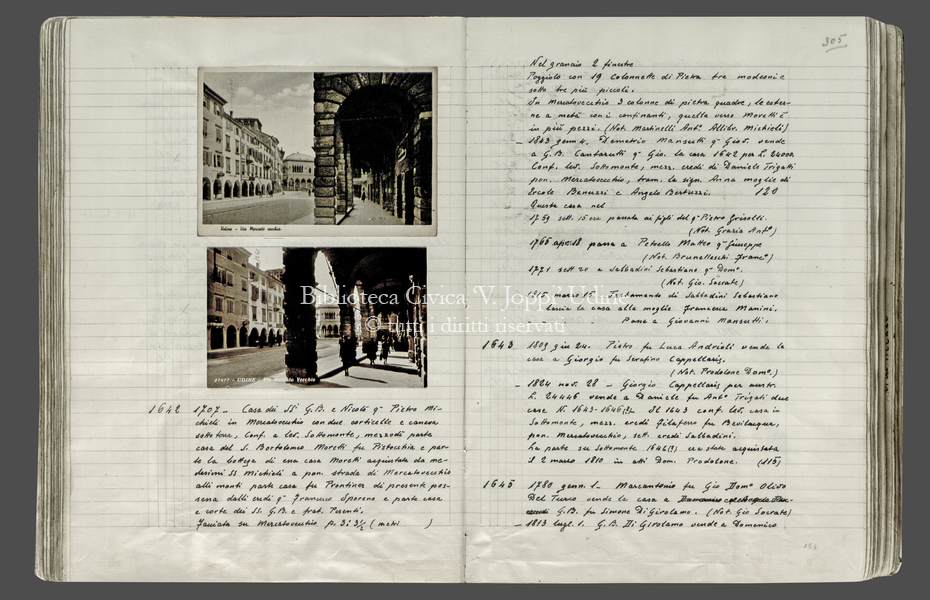 Udine - Via Mercato vecchio
UDINE - Via Mercato Vecchio
1642 1707 - Casa dei SSⁱ G.B. e Nicolò qᵐ Pietro Mi-
chieli in Mercatovecchio con due corticelle e caneva
sotterra, Conf. a lev. Sottomonte, mezzodì parte
casa del S. Bortolomeo Moretti fu Pistocchia e par-
te la bottega di essa casa Moretti acquistata da me-
desimi SS Michieli a pon. strada di Mercatovecchio
alli monti parte casa fu Prontinea di presente pos-
sessa dalli eredi qᵐ Francesco Sporeno e parte casa
e corte dei SS. G.B. e frat. Parenti.
Facciata su Mercatovecchio p. 3: 3½ (metri )
305
Nel granaio 2 finestre
Poggiolo con 19 colonnette di Pietra tre moderni e
sotto tre più piccoli.
In Mercatovecchio 3 colonne di pietra quadre, le ester-
ne a metà con i confinanti, quella verso Moretti è
in più pezzi. (Not. Martinelli Antº Allibr. Michieli)
- 1843 genn 4. Demetrio Mansutti qᵐ Giov. vende
a G.B. Cantarutti qᵐ Gio. la casa 1642 per L. 24000.
Conf. lev. Sottomonte, mezz. eredi di Daniele Trigatti
pon. Mercatovecchio, tram. la sign. Anna moglie di
Ercole Benuzzi e Angelo Bertuzzi. 120
Questa casa nel
1759 sett. 15 era passata ai figli del qᵐ Pietro Grisolli.
(Not. Grazia Antº)
1765 apr. 18 passa a Petrello Matteo qᵐ Giuseppe
(Not. Brunelleschi Francº)
1771 sett 20 a Sabbadini Sebastiano qᵐ Domº.
(Not. Gio. Socrate)
1815 marzo Testamento di Sabbadini Sebastiano
lascia la casa alla moglie Francesca Manini.
Passa a Giovanni Mansutti.
1643 1809 giu 24 - Pietro fu Luca Andrioli vende la
casa a Giorgio fu Serafino Cappellaris.
(Not. Prodolone Domº.)
- 1824 nov. 28 - Giorgio Cappellaris per austr.
L. 24446 vende a Daniele fu Antº Trigati due
case N. 1643-1646(?). Il 1643 conf. lev. casa in
Sottomonte, mezz. eredi Filaferro fu Bevilacqua,
pon. Mercatovecchio, sett. eredi Sabbadini.
La parte su Sottomonte 1646(?) era stata acquistata
il 2 marzo 1810 in atti Dom. Prodolone. (115)
1645 1780 genn. 1 - Marcantonio fu Gio Domº Olivo
Del Turco vende la casa a
G.B. fu Simone Di Girolamo. (Not. Gio Socrate)
- 1813 lugl. 1. G.B. Di Girolamo vende a Domenico
Biblioteca Civica 'V. Joppi' Udine
© tutti i diritti riservati